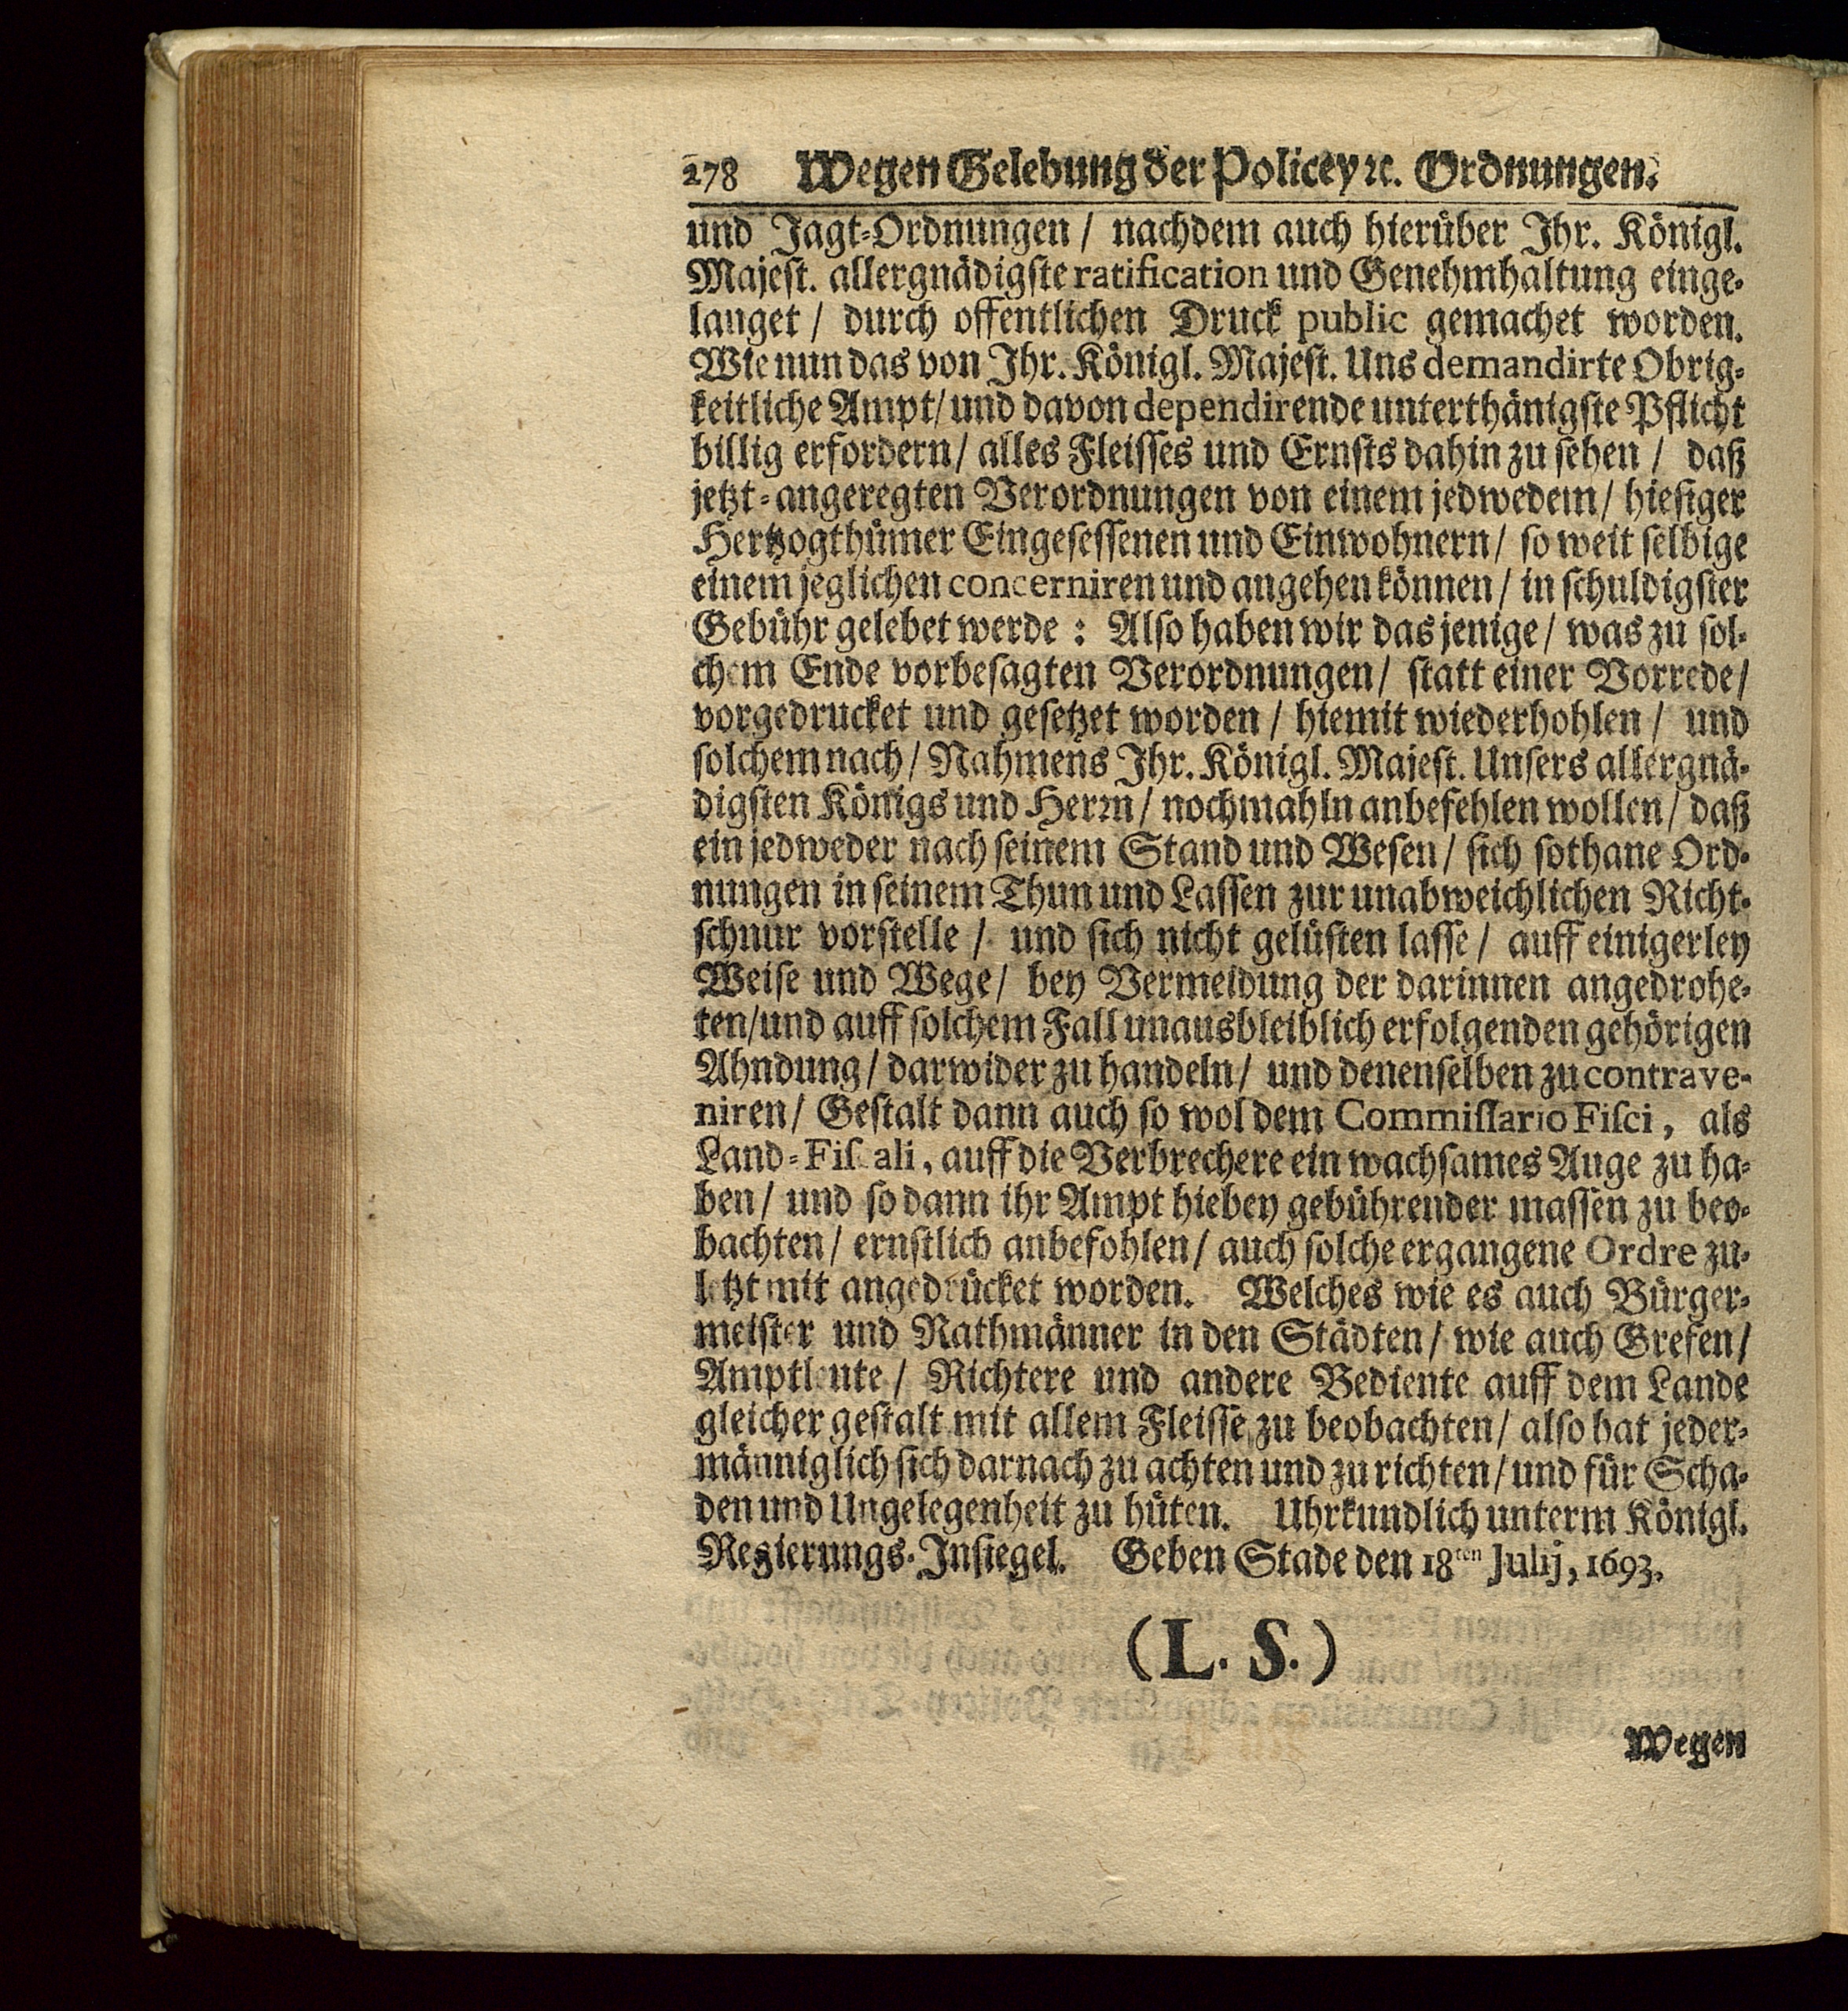 278 Wegen Gelebung der Policey ꝛc. Ordnungen.
und Jagt-Ordnungen / nachdem auch hierüber Ihr. Königl.
Majest. allergnädigste ratification und Genehmhaltung einge-
langet / durch offentlichen Druck public gemachet worden.
Wie nun das von Ihr. Königl. Majest. Uns demandirte Obrig-
keitliche Ampt / und davon dependirende unterthänigste Pflicht
billig erfordern / alles Fleisses und Ernsts dahin zu sehen / daß
jetzt-angeregten Verordnungen von einem jedwedem / hiesiger
Hertzogthümer Eingesessenen und Einwohnern / so weit selbige
einem jeglichen concerniren und angehen können / in schuldigster
Gebühr gelebet werde : Also haben wir das jenige / was zu sol-
chem Ende vorbesagten Verordnungen / statt einer Vorrede /
vorgedrucket und gesetzet worden / hiemit wiederhohlen / und
solchem nach / Nahmens Ihr. Königl. Majest. Unsers allergnä-
digsten Königs und Herrn / nochmahln anbefehlen wollen / daß
ein jedweder nach seinem Stand und Wesen / sich sothane Ord-
nungen in seinem Thun und Lassen zur unabweichlichen Richt-
schnur vorstelle / und sich nicht gelüsten lasse / auff einigerley
Weise und Wege / bey Vermeidung der darinnen angedrohe-
ten / und auff solchem Fall unausbleiblich erfolgenden gehörigen
Ahndung / darwider zu handeln / und denenselben zu contrave-
niren / Gestalt dann auch so wol dem Commissario Fisci, als
Land-Fiscali, auff die Verbrechere ein wachsames Auge zu ha-
ben / und so dann ihr Ampt hiebey gebührender massen zu beo-
bachten / ernstlich anbefohlen / auch solche ergangene Ordre zu-
letzt mit angedrücket worden. Welches wie es auch Bürger-
meister und Rathmänner in den Städten / wie auch Grefen /
Amptleute / Richtere und andere Bediente auff dem Lande
gleicher gestalt mit allem Fleisse zu beobachten / also hat jeder-
männiglich sich darnach zu achten und zu richten / und für Scha-
den und Ungelegenheit zu hüten. Uhrkundlich unterm Königl.
Regierungs-Insiegel. Geben Stade den 18ten Julij, 1693.
(L. S.)
Wegen